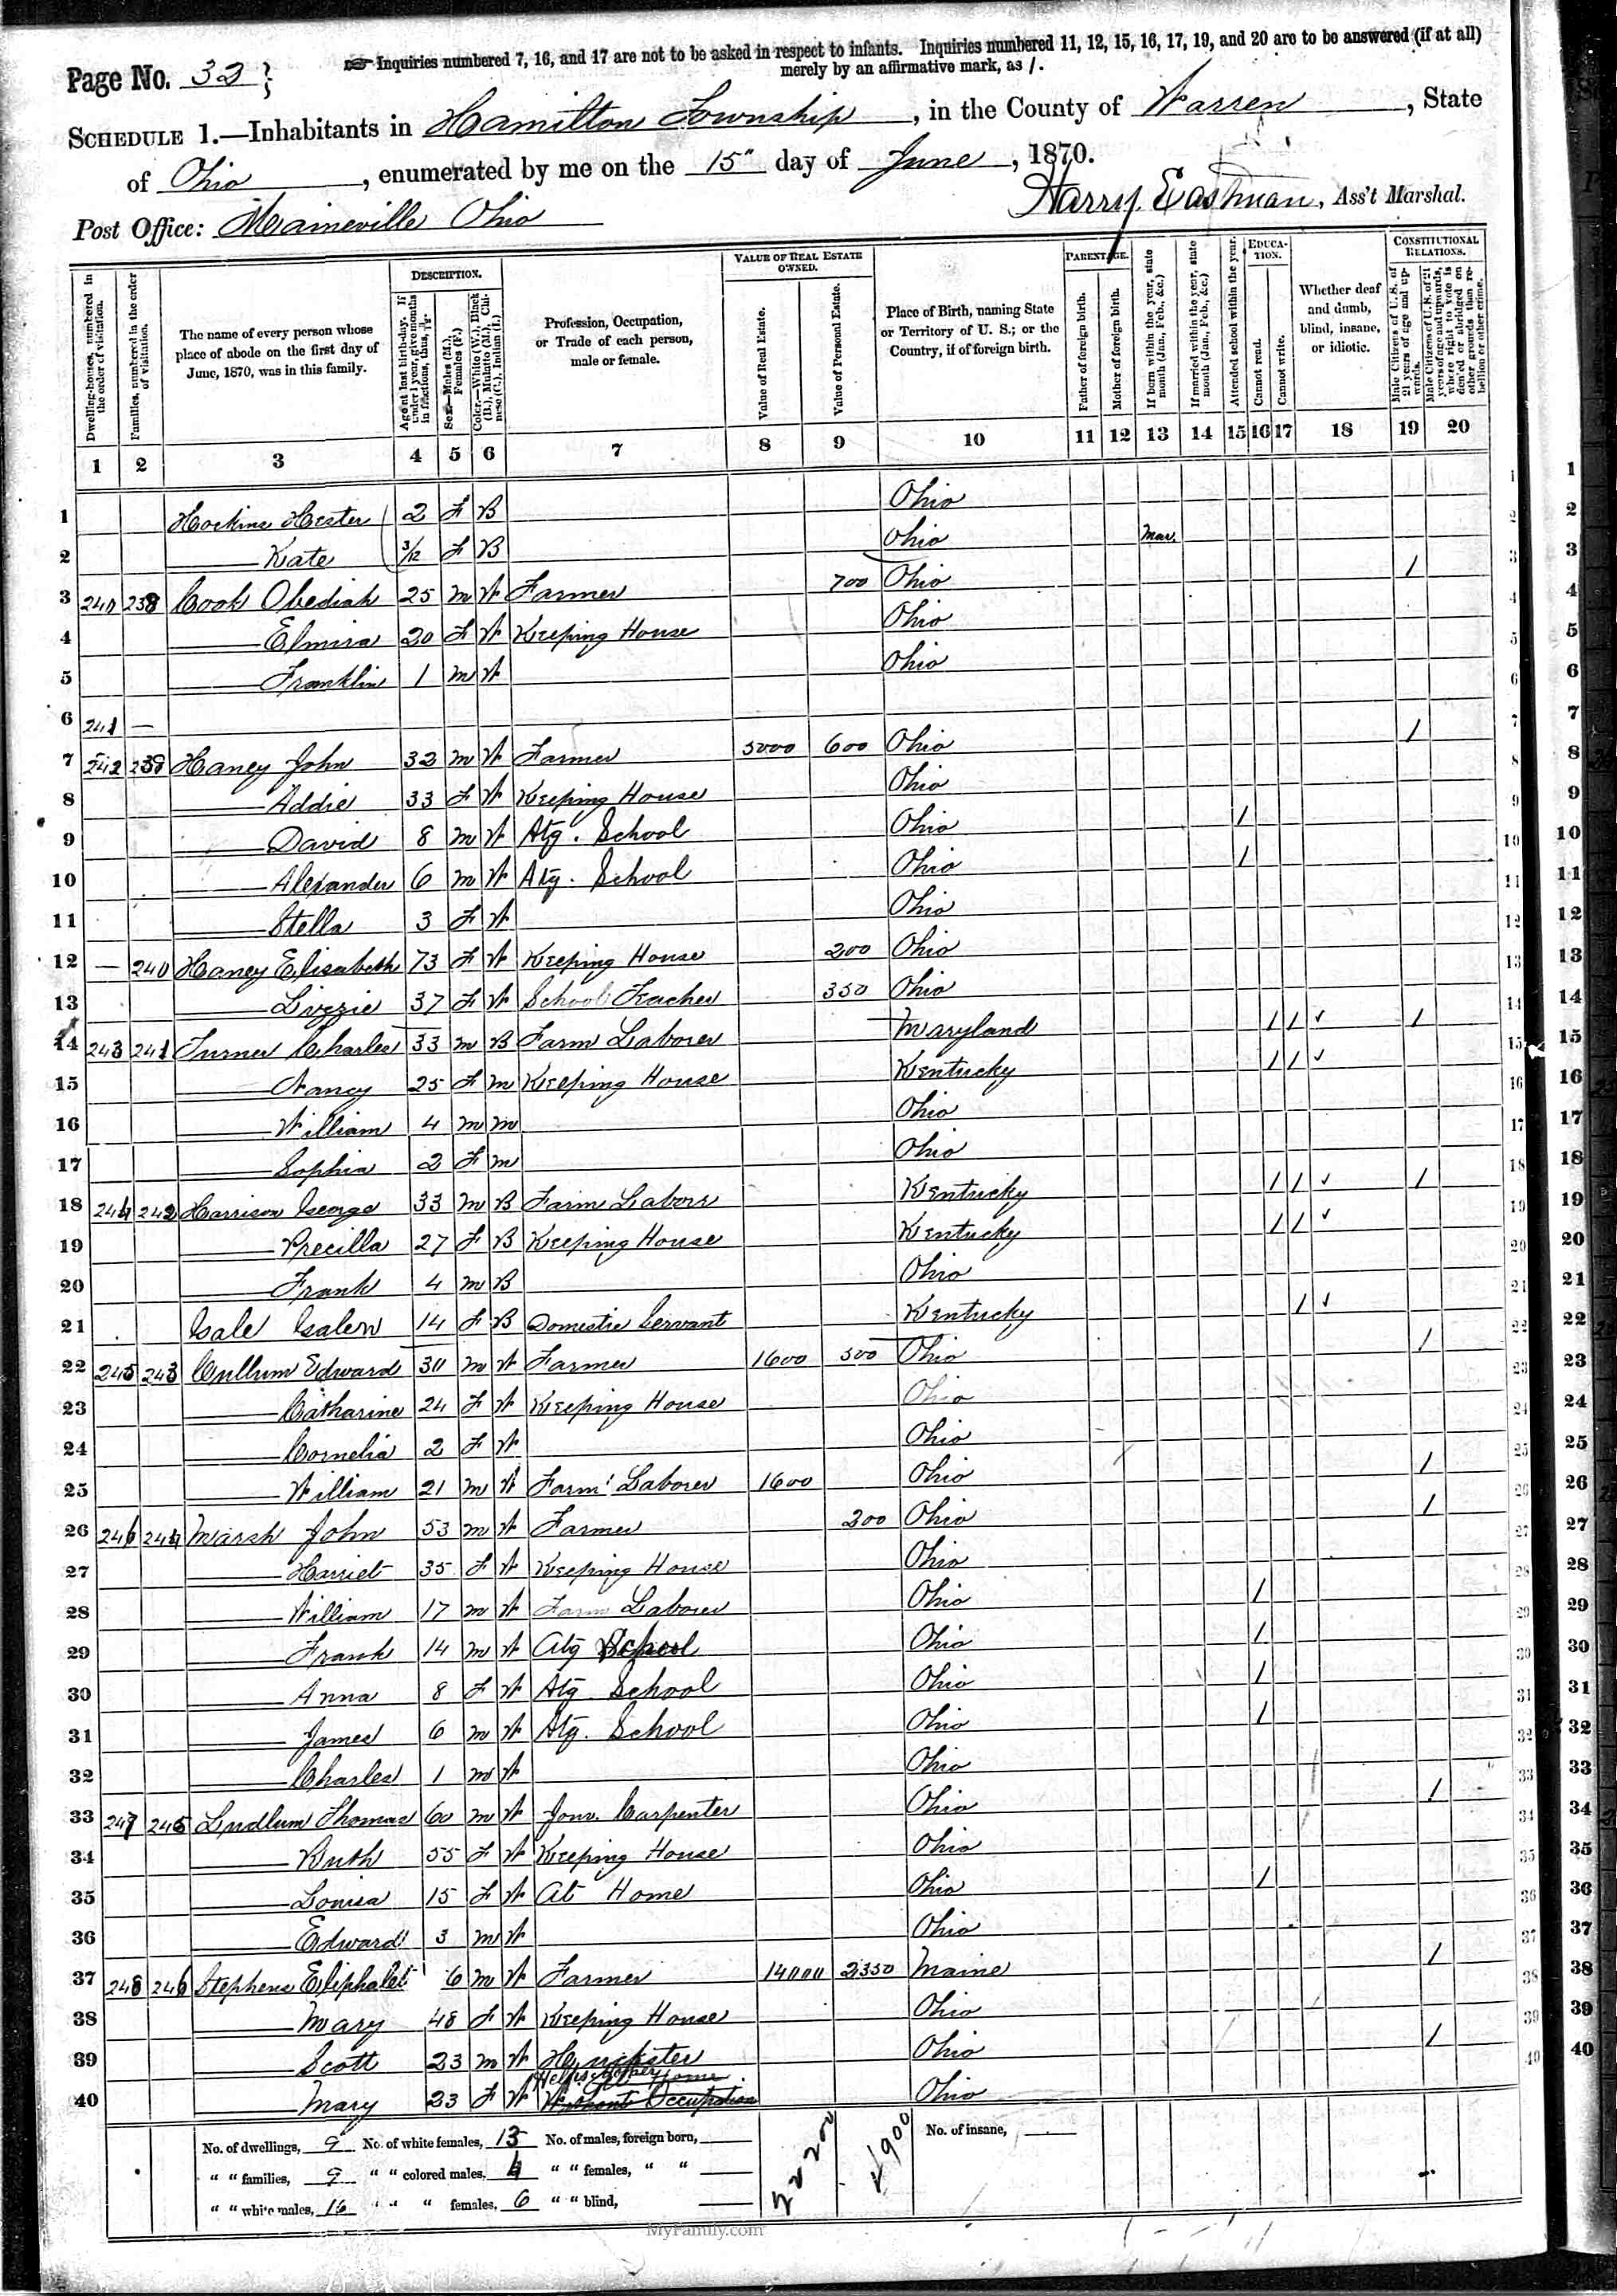 Page No. 32
☞ Inquiries numbered 7, 16, and 17 are not to be asked in respect to infants. Inquiries numbered 11, 12, 15, 16, 17, 19, and 20 are to be answered (if at all)
merely by an affirmative mark, as /.
SCHEDULE 1.—Inhabitants in Hamilton Township, in the County of Warren, State
of Ohio, enumerated by me on the 15" day of June, 1870.
Post Office: Maineville Ohio
Harry Eastman, Ass't Marshal.
Dwelling-houses, numbered in the order of visitation.
Families, numbered in the order of visitation.
The name of every person whose place of abode on the first day of June, 1870, was in this family.
DESCRIPTION.
Age at last birth-day. If under 1 year, give months in fractions, thus, 3/12.
Sex.—Males (M.), Females (F.)
Color.—White (W.), Black (B.), Mulatto (M.), Chinese (C.), Indian (I.)
Profession, Occupation, or Trade of each person, male or female.
VALUE OF REAL ESTATE OWNED.
Value of Real Estate.
Value of Personal Estate.
Place of Birth, naming State or Territory of U. S.; or the Country, if of foreign birth.
PARENTAGE.
Father of foreign birth.
Mother of foreign birth.
If born within the year, state month (Jan. Feb., &c.)
If married within the year, state month (Jan. Feb., &c.)
EDUCATION.
Attended school within the year.
Cannot read.
Cannot write.
Whether deaf and dumb, blind, insane, or idiotic.
CONSTITUTIONAL RELATIONS.
Male Citizens of U. S. of 21 years of age and upwards.
Male Citizens of U. S. of 21 years of age and upwards, where right to vote is denied or abridged on other grounds than rebellion or other crime.
1 2 3 4 5 6 7 8 9 10 11 12 13 14 15 16 17 18 19 20
1 Hockins Hester 2 F B Ohio
2 Kate 3/12 F B Ohio Mar
3 240 238 Cook Obediah 25 M W Farmer 700 Ohio /
4 Elmira 20 F W Keeping House Ohio
5 Franklin 1 M W Ohio
6 241 —
7 242 239 Haney John 32 M W Farmer 5000 600 Ohio /
8 Addie 33 F W Keeping House Ohio
9 David 8 M W Atg. School Ohio /
10 Alexander 6 M W Atg. School Ohio /
11 Stella 3 F W Ohio
12 — 240 Haney Elisabeth 73 F W Keeping House 200 Ohio
13 Livzzie 37 F W School Teacher 350 Ohio
14 243 241 Turner Charles 33 M B Farm Laborer Maryland / / ✓ /
15 Nancy 25 F M Keeping House Kentucky / / ✓
16 William 4 M M Ohio
17 Sophia 2 F M Ohio
18 244 242 Harrison George 33 M B Farm Labore Kentucky / / ✓ /
19 Precilla 27 F B Keeping House Kentucky / / ✓
20 Frank 4 M B Ohio
21 Gale Galen 14 F B Domestic Servant Kentucky / ✓
22 245 243 Cullum Edward 30 M W Farmer 1600 500 Ohio /
23 Catharine 24 F W Keeping House Ohio
24 Cornelia 2 F W Ohio
25 William 21 M W Farm Laborer 1600 Ohio /
26 246 244 Marsh John 53 M W Farmer 200 Ohio /
27 Harriet 35 F W Keeping House Ohio
28 William 17 M W Farm Laborer Ohio /
29 Frank 14 M W Atg School Ohio /
30 Anna 8 F W Atg School Ohio /
31 James 6 M W Atg. School Ohio /
32 Charles 1 M W Ohio
33 247 245 Ludlum Thomas 60 M W Jour. Carpenter Ohio /
34 Ruth 55 F W Keeping House Ohio
35 Louisa 15 F W At Home Ohio /
36 Edward 3 M W Ohio
37 248 246 Stephens Eliphalet 6 M W Farmer 14000 2350 Maine /
38 Mary 48 F W Keeping House Ohio
39 Scott 23 M W Huckster Ohio /
40 Mary 23 F W Helps Mother Without Occupation Ohio
No. of dwellings, 9 No. of white females, 13 No. of males, foreign born, No. of insane,
" " families, 9 " " colored males, 4 " " females, " "
" " white males, 16 " " " females, 6 " " blind,
22200 4900
MyFamily.com